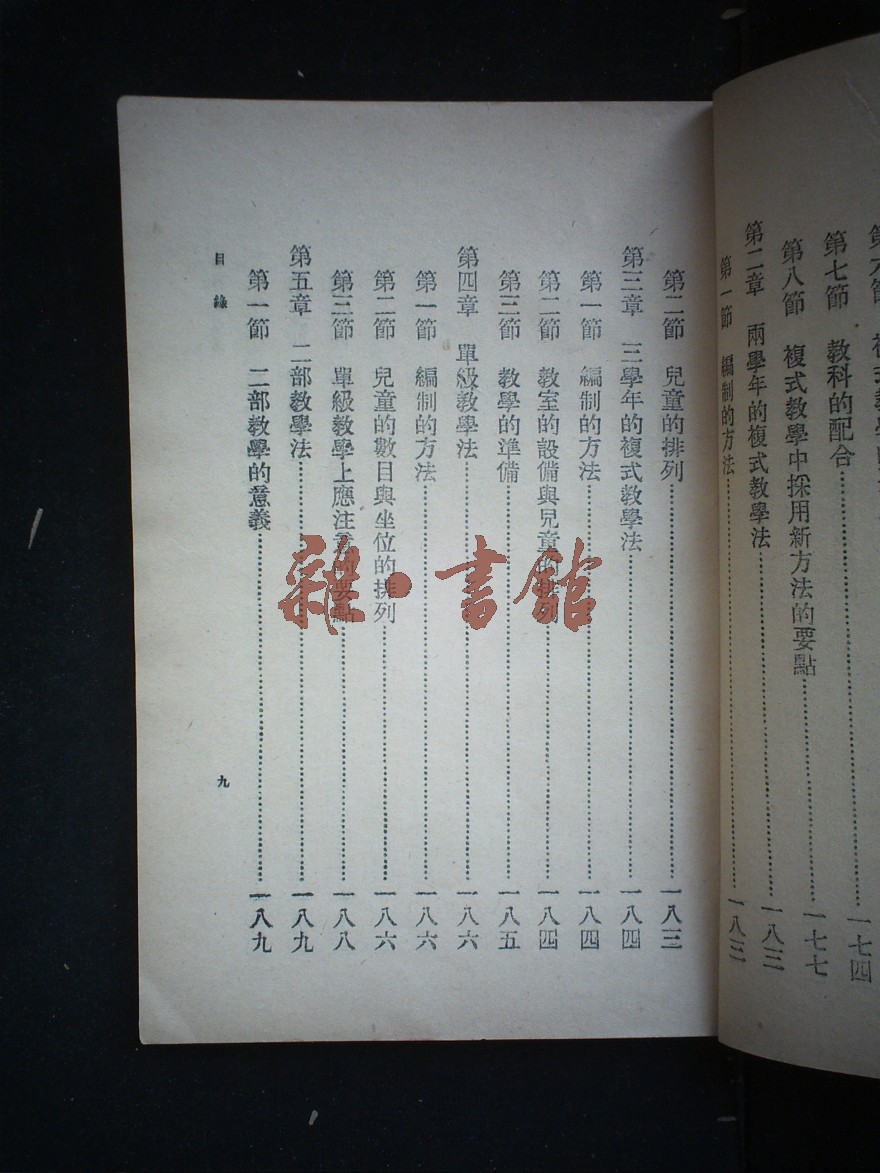 第七節 教科的配合…一七四
第八節 複式教學中採用新方法的要點…一七七
第二章 兩學年的複式教學法…一八三
第一節 編制的方法…一八三
第二節 兒童的排列…一八三
第三章 三學年的複式教學法…一八四
第一節 編制的方法…一八四
第二節 教室的設備與兒童的排列…一八四
第三節 教學的準備…一八五
第四章 單級教學法…一八六
第一節 編制的方法…一八六
第二節 兒童的數目與坐位的排列…一八六
第三節 單級教學上應注意的要點…一八八
第五章 二部教學法…一八九
第一節 二部教學的意義…一八九
目錄
九
雜·書館